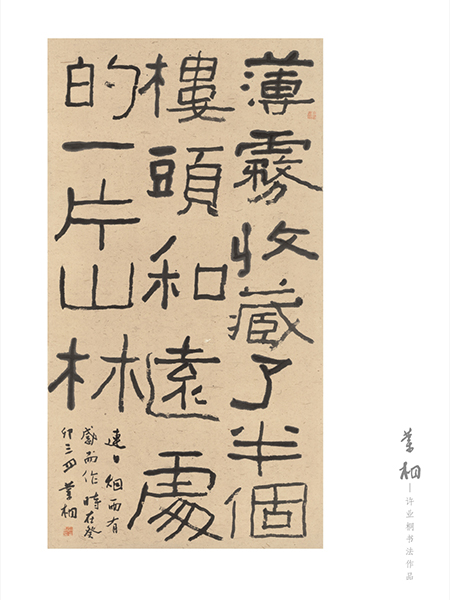 薄霧收藏了半個
樓頭和遠處
的一片山林
連日烟雨有
感而作時在癸
卯三月業桐
業桐
许业桐书法作品